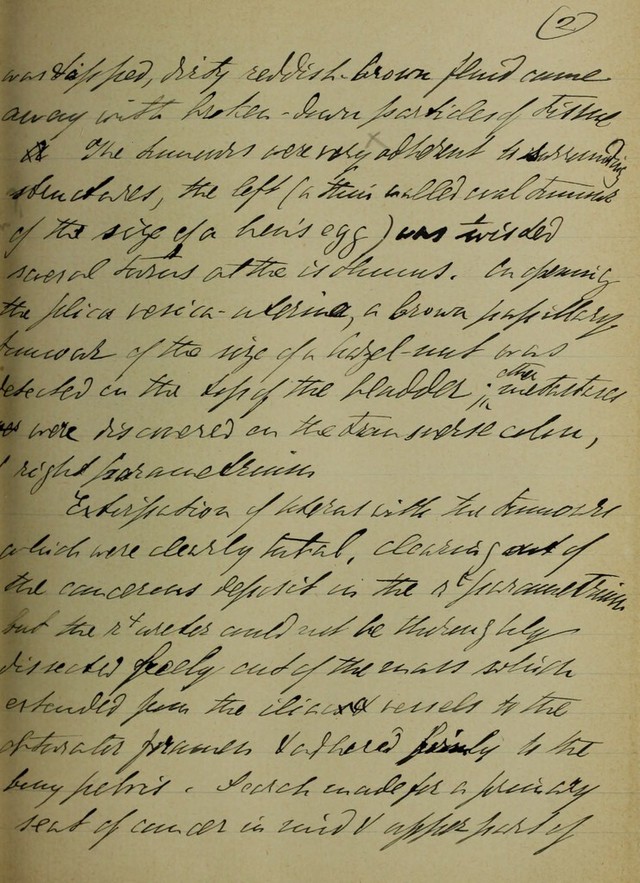 (2)
was tapped, dirty reddish-brown fluid came
away with broken-down particles of tissue
The tumours were very adherent to surrounding
structures, the left (a thin walled oval tumour
of the size of a hen's egg) was twisted
several turns at the isthmus. On opening
the plica vesica-uterina, a brown papillary
tumour of the size of a hazel-nut was
detected on the top of the bladder; other metastases
were discovered on the transverse colon,
right parametrium
Extirpation of uterus with the tumours
which were clearly tubal, clearing out of
the cancerous deposit in the rt parametrium
but the rt ureter could not be thoroughly
dissected freely out of the mass which
extended from the iliac vessels to the
obturator foramen & adhered firmly to the
bony pelvis. Search made for a primary
seat of cancer in mid & upper part of